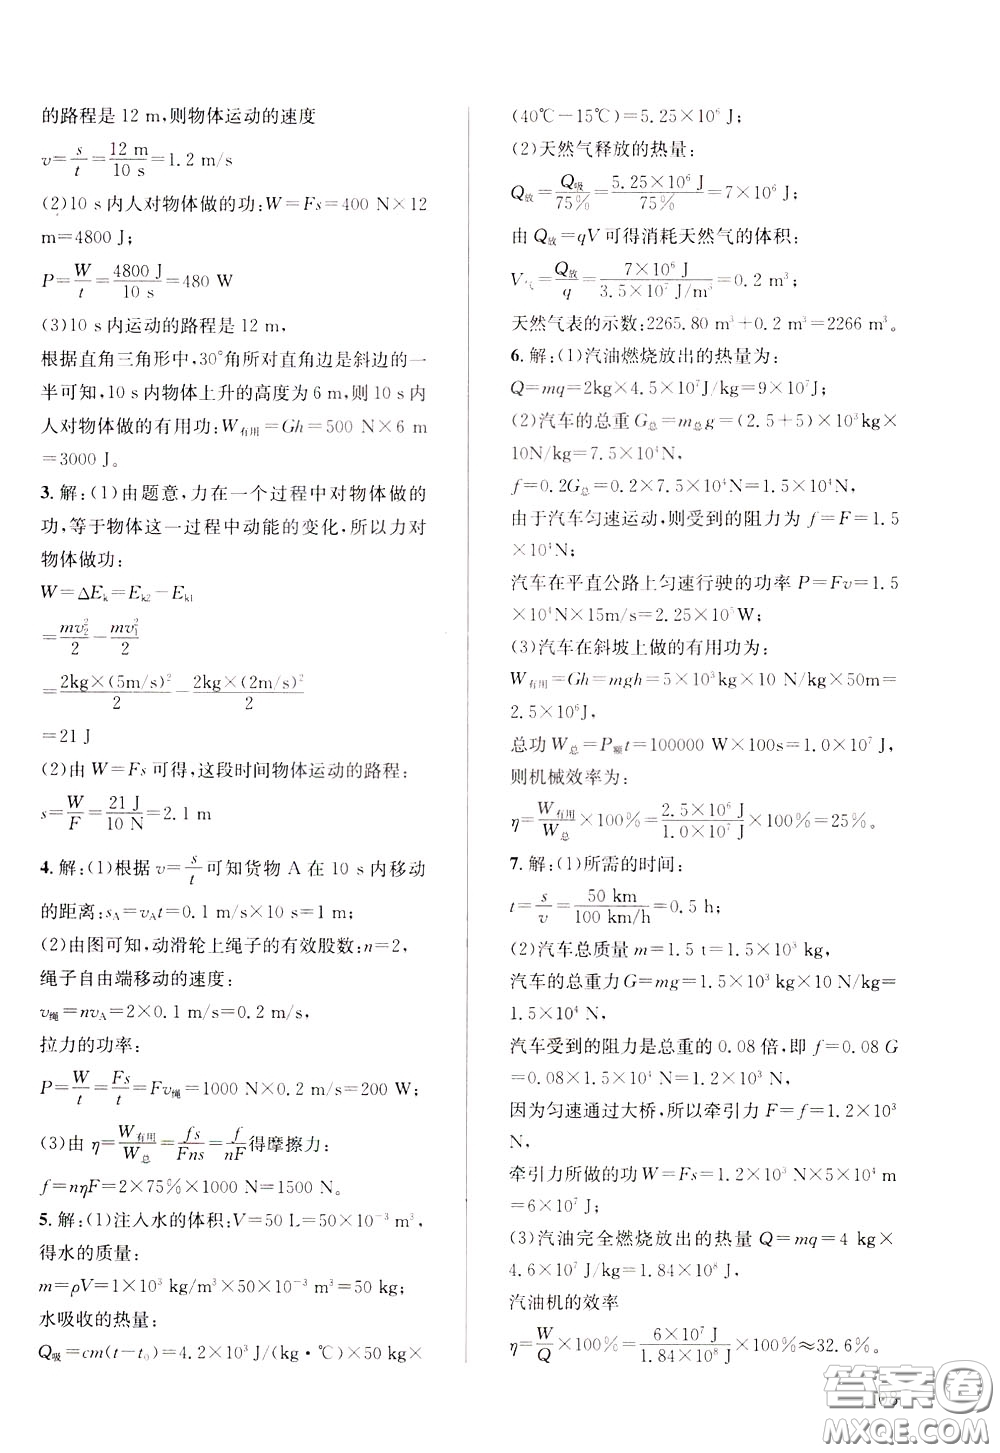 的路程是 12 m,则物体运动的速度
v=s/t=12 m/10 s=1.2 m/s
(2)10 s内人对物体做的功:W=Fs=400 N×12
m=4800 J;
P=W/t=4800 J/10 s=480 W
(3)10 s内运动的路程是 12 m,
根据直角三角形中,30°角所对直角边是斜边的一
半可知,10 s内物体上升的高度为 6 m,则 10 s内
人对物体做的有用功:W有用=Gh=500 N×6 m
=3000 J。
3.解:(1)由题意,力在一个过程中对物体做的
功,等于物体这一过程中动能的变化,所以力对
物体做功:
W=ΔEk=Ek2-Ek1
=mv₂²/2-mv₁²/2
=2kg×(5m/s)²/2-2kg×(2m/s)²/2
=21 J
(2)由 W=Fs可得,这段时间物体运动的路程:
s=W/F=21 J/10 N=2.1 m
4.解:(1)根据 v=s/t可知货物 A 在 10 s内移动
的距离:sA=vAt=0.1 m/s×10 s=1 m;
(2)由图可知,动滑轮上绳子的有效股数:n=2,
绳子自由端移动的速度:
v绳=nvA=2×0.1 m/s=0.2 m/s,
拉力的功率:
P=W/t=Fs/t=Fv绳=1000 N×0.2 m/s=200 W;
(3)由 η=W有用/W总=fs/Fns=f/nF得摩擦力:
f=nηF=2×75%×1000 N=1500 N。
5.解:(1)注入水的体积:V=50 L=50×10⁻³ m³,
得水的质量:
m=ρV=1×10³ kg/m³×50×10⁻³ m³=50 kg;
水吸收的热量:
Q吸=cm(t-t₀)=4.2×10³ J/(kg·℃)×50 kg×
(40℃-15℃)=5.25×10⁶ J;
(2)天然气释放的热量:
Q放=Q吸/75%=5.25×10⁶ J/75%=7×10⁶ J;
由 Q放=qV可得消耗天然气的体积:
V气=Q放/q=7×10⁶ J/3.5×10⁷ J/m³=0.2 m³;
天然气表的示数:2265.80 m³+0.2 m³=2266 m³。
6.解:(1)汽油燃烧放出的热量为:
Q=mq=2kg×4.5×10⁷J/kg=9×10⁷J;
(2)汽车的总重 G总=m总g=(2.5+5)×10³kg×
10N/kg=7.5×10⁴N,
f=0.2G总=0.2×7.5×10⁴N=1.5×10⁴N,
由于汽车匀速运动,则受到的阻力为 f=F=1.5
×10⁴N;
汽车在平直公路上匀速行驶的功率 P=Fv=1.5
×10⁴N×15m/s=2.25×10⁵W;
(3)汽车在斜坡上做的有用功为:
W有用=Gh=mgh=5×10³kg×10 N/kg×50m=
2.5×10⁶J,
总功 W总=P额t=100000 W×100s=1.0×10⁷ J,
则机械效率为:
η=W有用/W总×100%=2.5×10⁶ J/1.0×10⁷ J×100%=25%。
7.解:(1)所需的时间:
t=s/v=50 km/100 km/h=0.5 h;
(2)汽车总质量 m=1.5 t=1.5×10³ kg,
汽车的总重力 G=mg=1.5×10³ kg×10 N/kg=
1.5×10⁴ N,
汽车受到的阻力是总重的 0.08 倍,即 f=0.08 G
=0.08×1.5×10⁴N=1.2×10³ N,
因为匀速通过大桥,所以牵引力 F=f=1.2×10³
N,
牵引力所做的功 W=Fs=1.2×10³ N×5×10⁴ m
=6×10⁷ J;
(3)汽油完全燃烧放出的热量 Q=mq=4 kg×
4.6×10⁷J/kg=1.84×10⁸ J,
汽油机的效率
η=W/Q×100%=6×10⁷ J/1.84×10⁸ J×100%≈32.6%。
答案圈
MXQE.COM